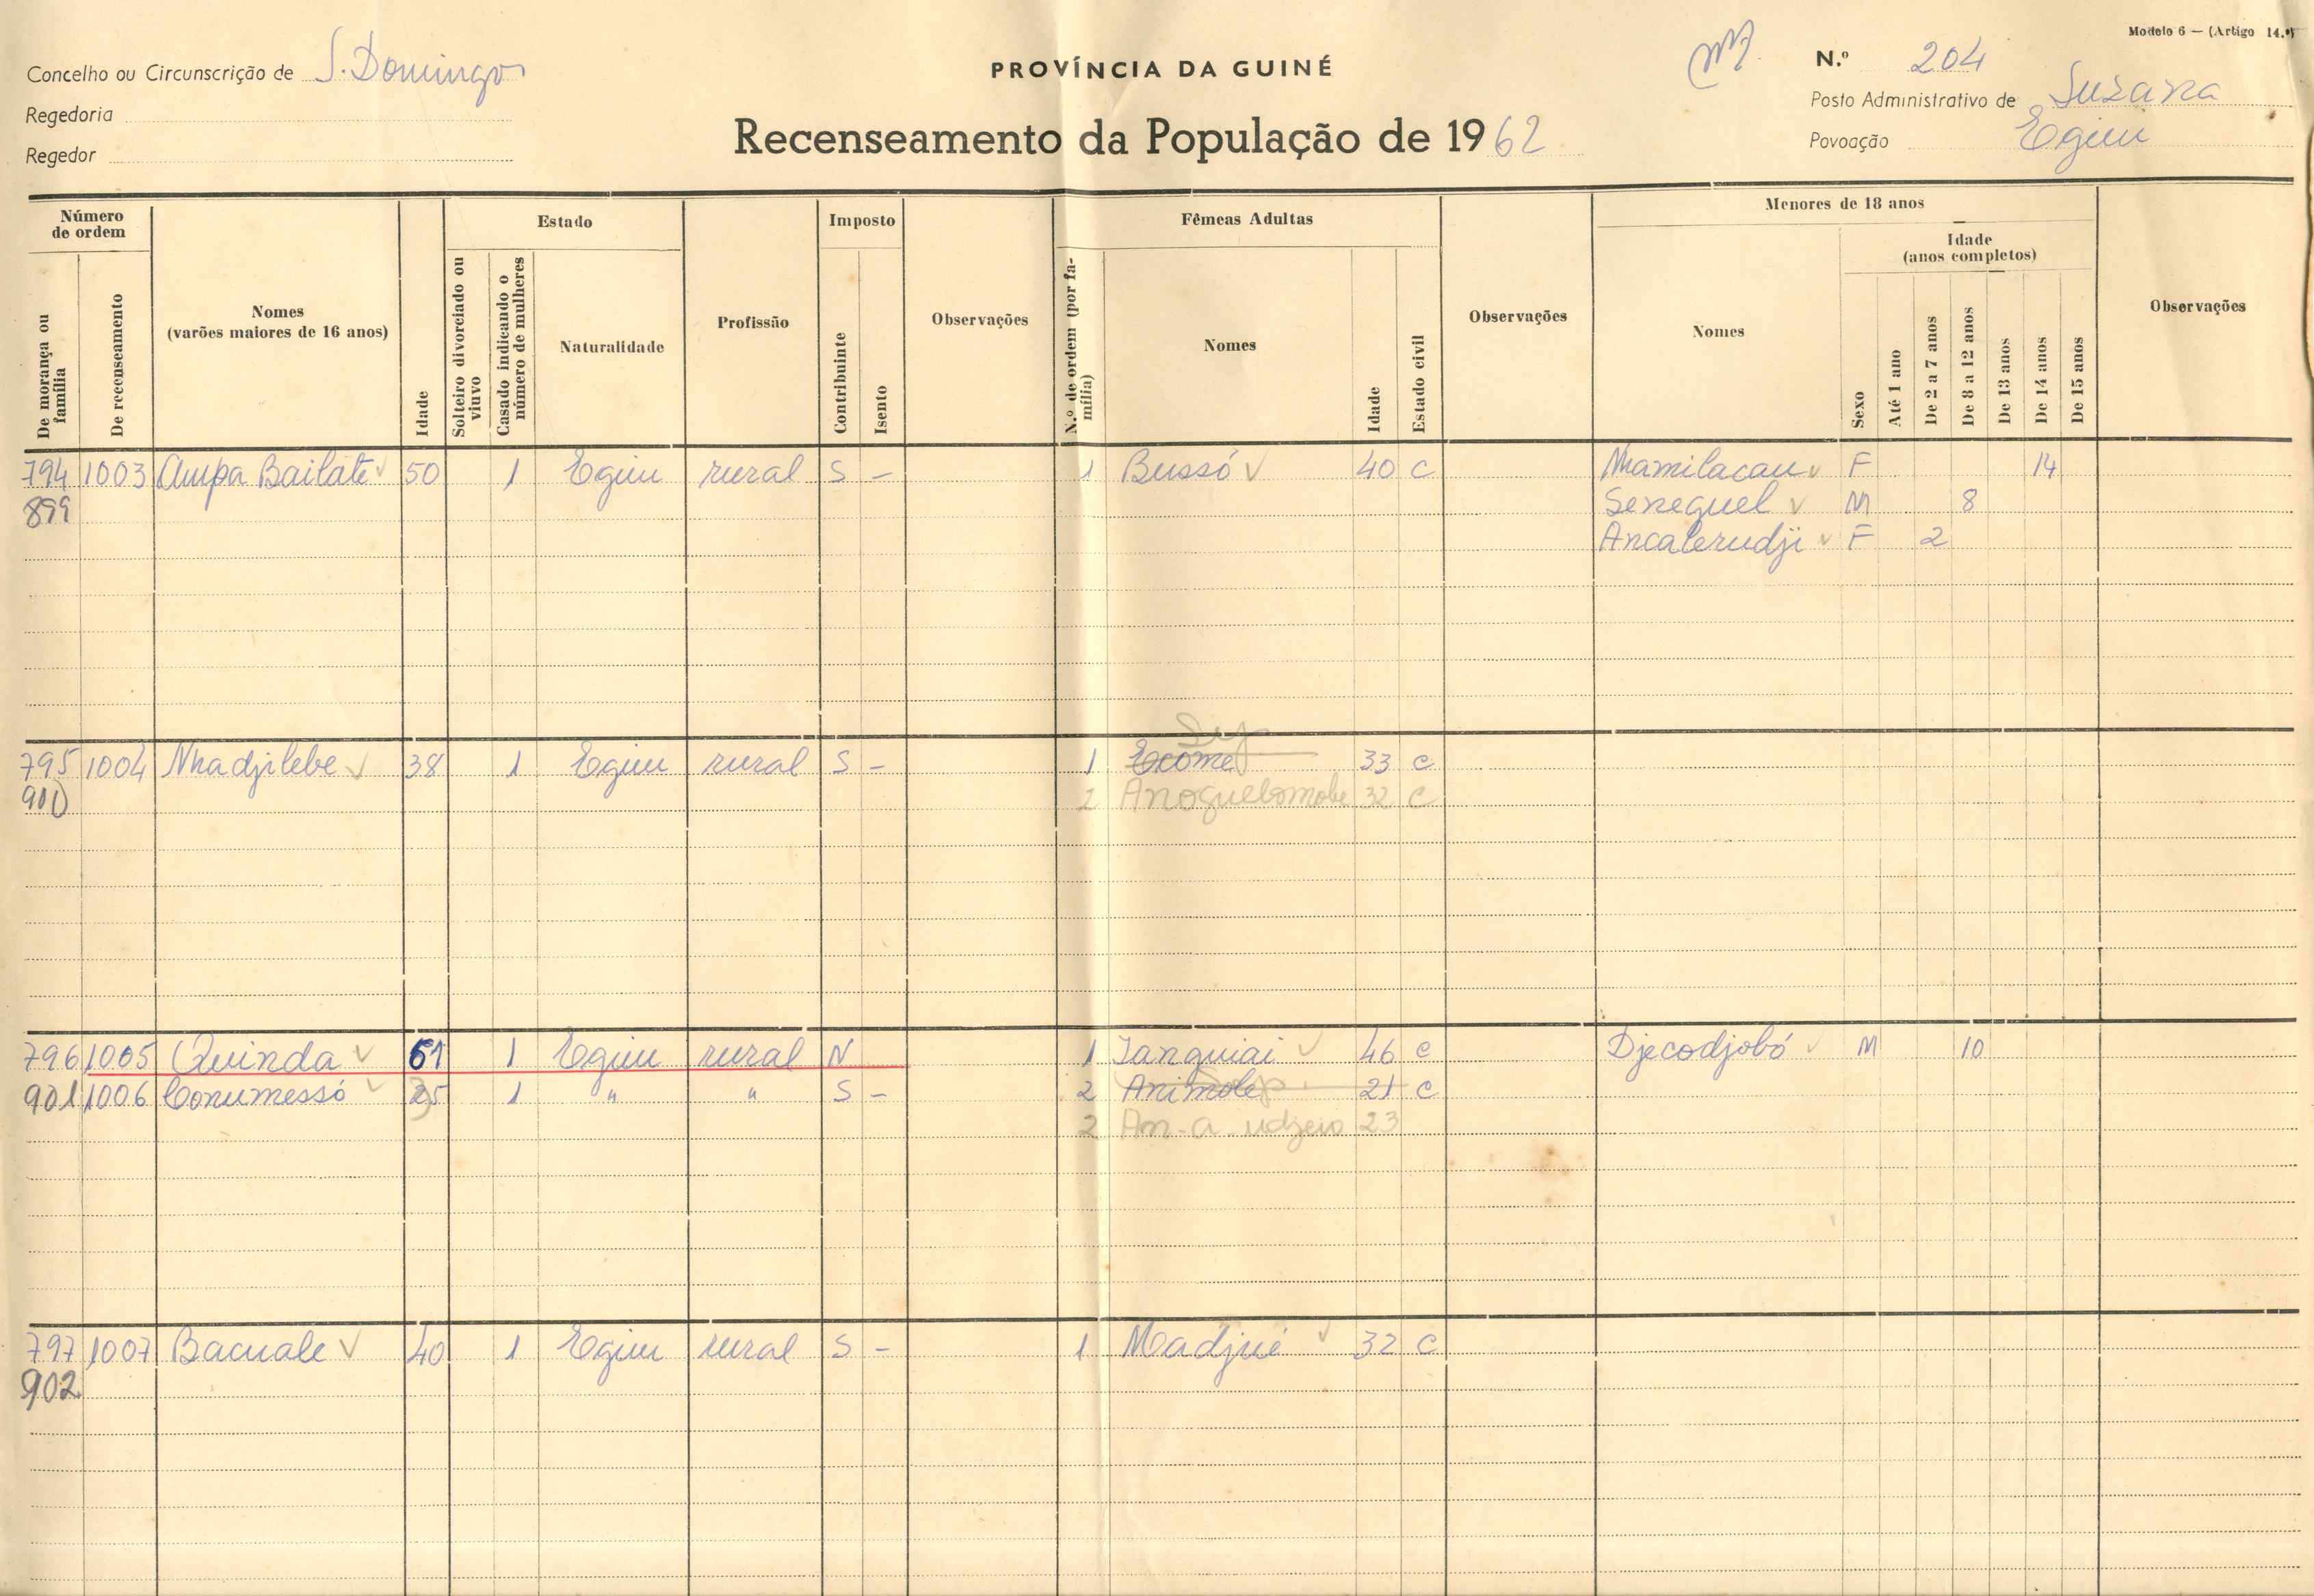 Modelo 6 — (Artigo 14.º)
Concelho ou Circunscrição de S. Domingos
PROVÍNCIA DA GUINÉ
N.º 204
Regedoria
Posto Administrativo de Suzana
Regedor
Recenseamento da População de 1962
Povoação Egim
Número de ordem
Estado
Imposto
Fêmeas Adultas
Menores de 18 anos
Idade (anos completos)
De morança ou família
De recenseamento
Nomes (varões maiores de 16 anos)
Idade
Solteiro divorciado ou viuvo
Casado indicando o número de mulheres
Naturalidade
Profissão
Contribuinte
Isento
Observações
N.º de ordem (por família)
Nomes
Idade
Estado civil
Observações
Nomes
Sexo
Até 1 ano
De 2 a 7 anos
De 8 a 12 anos
De 13 anos
De 14 anos
De 15 anos
Observações
794 1003 Ampa Bailate 50 1 Egim rural S - 1 Bussó 40 C Nhamilacau F 14
899 Seneguel M 8
Ancalerudji F 2
795 1004 Nhadjilebe 38 1 Egim rural S - 1 Ecome 33 C
900 2 Anoquebomobe 32 C
796 1005 Quinda 61 1 Egim rural N 1 Janguiai 46 C Djecodjobó M 10
901 1006 Conumessó 35 1 " " S - 2 Animole 21 C
2 An-a udjeio 23
797 1007 Bacuale 40 1 Egim rural S - 1 Madjué 32 C
902